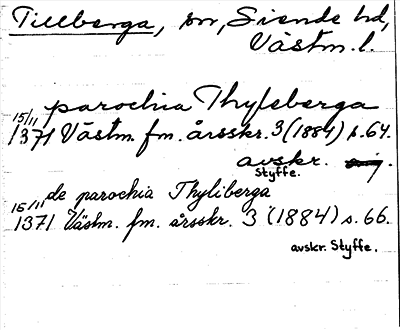 Tillberga, sn, Siende hd,
Västm. l.
parochia Thyleberga
15/11 1371 Västm. fm. årsskr. 3 (1884) s. 64.
avskr.
Styffe.
de parochia Thyliberga
15/11 1371 Västm. fm. årsskr. 3 (1884) s. 66.
avskr. Styffe.